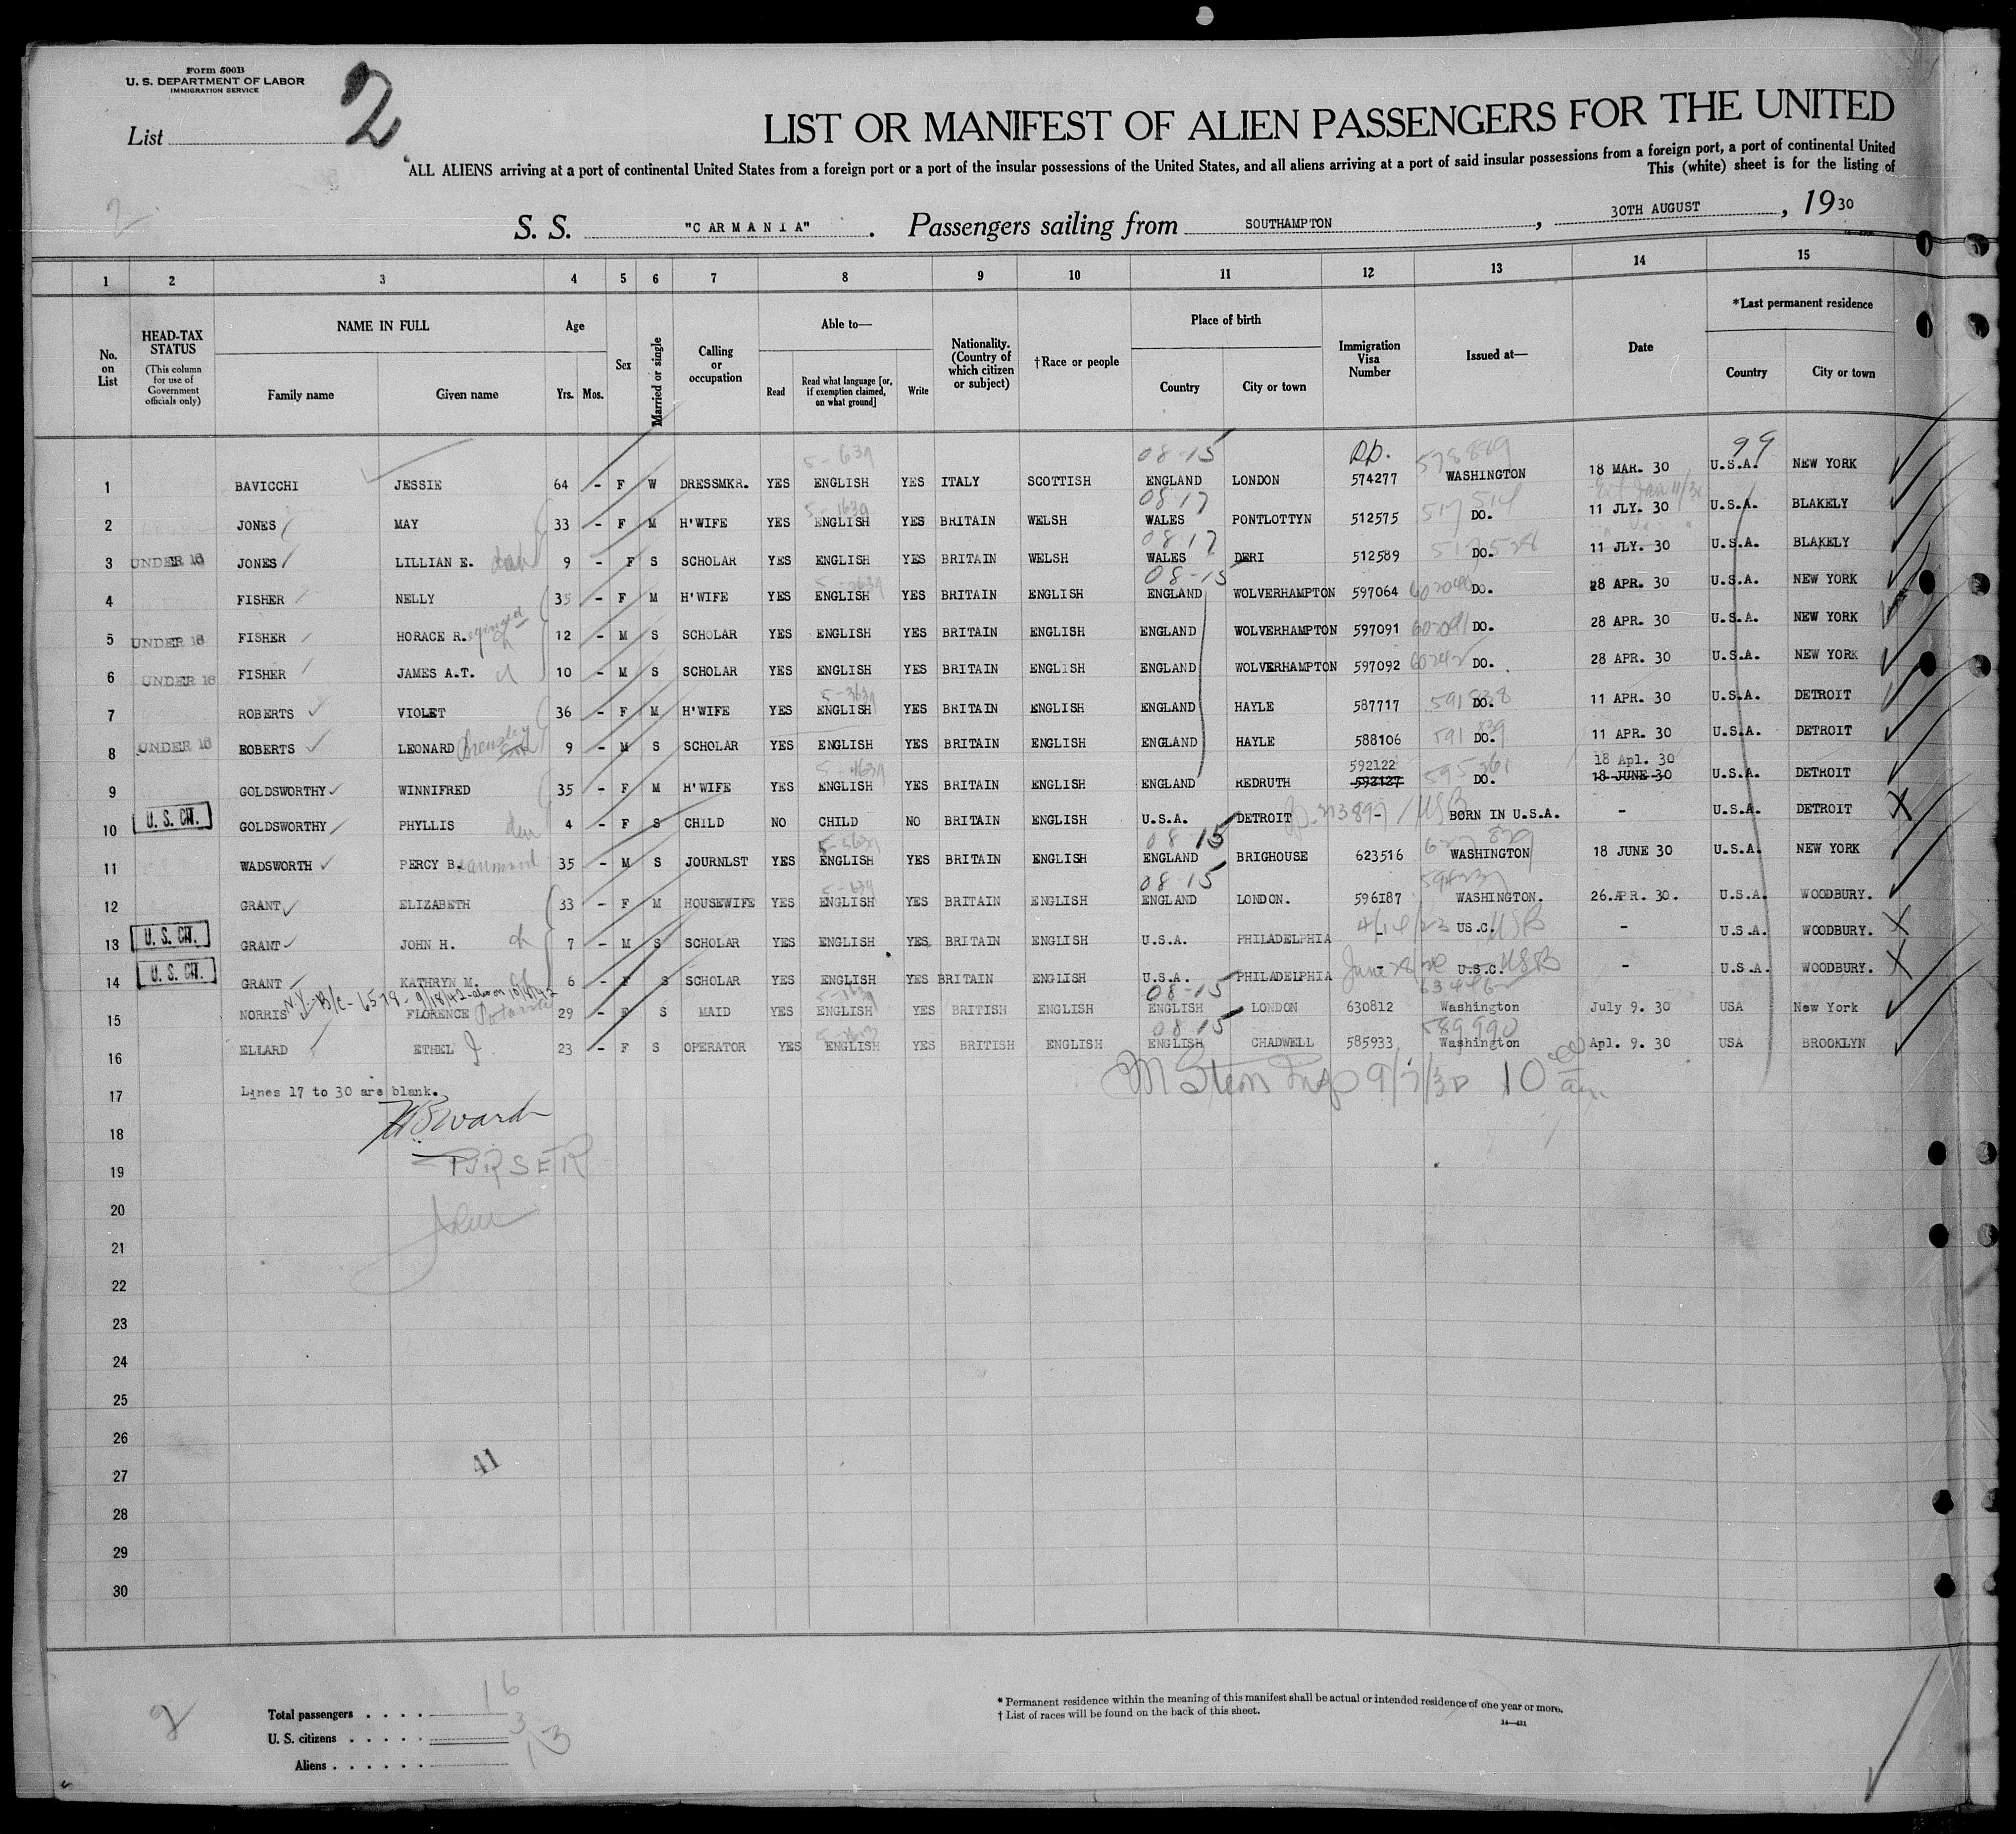 Form 500B
U. S. DEPARTMENT OF LABOR
IMMIGRATION SERVICE
List 2
LIST OR MANIFEST OF ALIEN PASSENGERS FOR THE UNITED
ALL ALIENS arriving at a port of continental United States from a foreign port or a port of the insular possessions of the United States, and all aliens arriving at a port of said insular possessions from a foreign port, a port of continental United
This (white) sheet is for the listing of
2
S. S. "CARMANIA". Passengers sailing from SOUTHAMPTON, 30TH AUGUST, 1930
1 2 3 4 5 6 7 8 9 10 11 12 13 14 15
No. on List
HEAD-TAX STATUS (This column for use of Government officials only)
NAME IN FULL
Family name Given name
Age
Yrs. Mos.
Sex
Married or single
Calling or occupation
Able to—
Read Read what language [or, if exemption claimed, on what ground] Write
Nationality. (Country of which citizen or subject)
†Race or people
Place of birth
Country City or town
Immigration Visa Number
Issued at—
Date
*Last permanent residence
Country City or town
5-639 08-15 99
1 BAVICCHI JESSIE 64 - F W DRESSMKR. YES ENGLISH YES ITALY SCOTTISH ENGLAND LONDON 574277 WASHINGTON 18 MAR. 30 U.S.A. NEW YORK
5-1639 08 17
2 JONES MAY 33 - F M H'WIFE YES ENGLISH YES BRITAIN WELSH WALES PONTLOTTYN 512575 DO. 11 JLY. 30 U.S.A. BLAKELY
08 17
3 UNDER 16 JONES LILLIAN E. 9 - F S SCHOLAR YES ENGLISH YES BRITAIN WELSH WALES DERI 512589 DO. 11 JLY. 30 U.S.A. BLAKELY
5-2639 08-15
4 FISHER NELLY 35 - F M H'WIFE YES ENGLISH YES BRITAIN ENGLISH ENGLAND WOLVERHAMPTON 597064 DO. 28 APR. 30 U.S.A. NEW YORK
5 UNDER 16 FISHER HORACE R. 12 - M S SCHOLAR YES ENGLISH YES BRITAIN ENGLISH ENGLAND WOLVERHAMPTON 597091 DO. 28 APR. 30 U.S.A. NEW YORK
6 UNDER 16 FISHER JAMES A.T. 10 - M S SCHOLAR YES ENGLISH YES BRITAIN ENGLISH ENGLAND WOLVERHAMPTON 597092 DO. 28 APR. 30 U.S.A. NEW YORK
5-3639
7 ROBERTS VIOLET 36 - F M H'WIFE YES ENGLISH YES BRITAIN ENGLISH ENGLAND HAYLE 587717 591838 DO. 11 APR. 30 U.S.A. DETROIT
8 UNDER 16 ROBERTS LEONARD 9 - M S SCHOLAR YES ENGLISH YES BRITAIN ENGLISH ENGLAND HAYLE 588106 591839 DO. 11 APR. 30 U.S.A. DETROIT
5-4639 592122 18 Apl. 30
9 GOLDSWORTHY WINNIFRED 35 - F M H'WIFE YES ENGLISH YES BRITAIN ENGLISH ENGLAND REDRUTH 592127 DO. 18 JUNE 30 U.S.A. DETROIT
10 U. S. CIT. GOLDSWORTHY PHYLLIS 4 - F S CHILD NO CHILD NO BRITAIN ENGLISH U.S.A. DETROIT - BORN IN U.S.A. - U.S.A. DETROIT
5-5639 08 15
11 WADSWORTH PERCY B.eaumond 35 - M S JOURNLST YES ENGLISH YES BRITAIN ENGLISH ENGLAND BRIGHOUSE 623516 WASHINGTON 18 JUNE 30 U.S.A. NEW YORK
5-639 08-15
12 GRANT ELIZABETH 33 - F M HOUSEWIFE YES ENGLISH YES BRITAIN ENGLISH ENGLAND LONDON. 596187 WASHINGTON. 26.APR. 30. U.S.A. WOODBURY.
13 U. S. CIT. GRANT JOHN H. 7 - M S SCHOLAR YES ENGLISH YES BRITAIN ENGLISH U.S.A. PHILADELPHIA - 4/14/23 US.C. USB - U.S.A. WOODBURY.
14 U. S. CIT. GRANT KATHRYN M. 6 - F S SCHOLAR YES ENGLISH YES BRITAIN ENGLISH U.S.A. PHILADELPHIA - U.S.C. USB - U.S.A. WOODBURY.
N.Y. B/C - 6578 - 9/18/42 also on 10/8/42
5-1639 08-15
15 NORRIS FLORENCE 29 - F S MAID YES ENGLISH YES BRITISH ENGLISH ENGLISH LONDON 630812 Washington July 9. 30 USA New York
08 15 589990
16 ELLARD ETHEL J 23 - F S OPERATOR YES ENGLISH YES BRITISH ENGLISH ENGLISH CHADWELL 585933 Washington Apl. 9. 30 USA BROOKLYN
M Stern Insp 9/7/30 10 00 am
17 Lines 17 to 30 are blank.
18
PURSER
19
20
21
22
23
24
25
26
41
27
28
29
30
2
Total passengers . . . . 16
U. S. citizens . . . . . 3
Aliens . . . . . . 13
* Permanent residence within the meaning of this manifest shall be actual or intended residence of one year or more.
† List of races will be found on the back of this sheet.
14—421